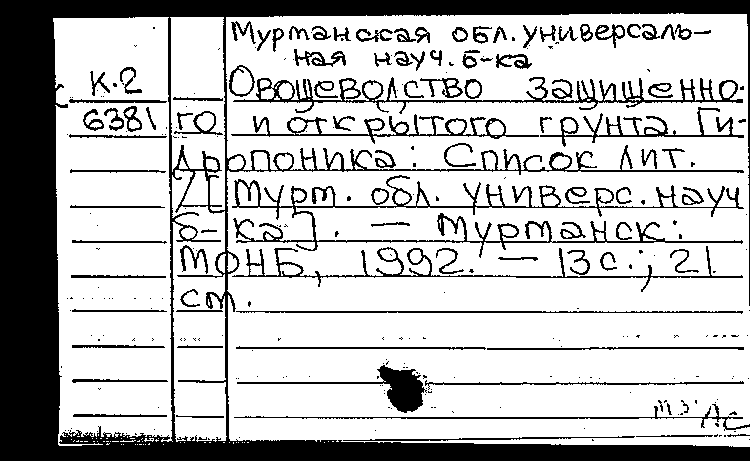 Мурманская обл. универсаль-
ная науч. б-ка
К.2 Овощеводство защищенно-
6381 го и открытого грунта. Ги-
дропоника: Список лит.
/[Мурм. обл. универс. науч
б-ка]. — Мурманск:
МОНБ, 1992. — 13 с.; 21
см.